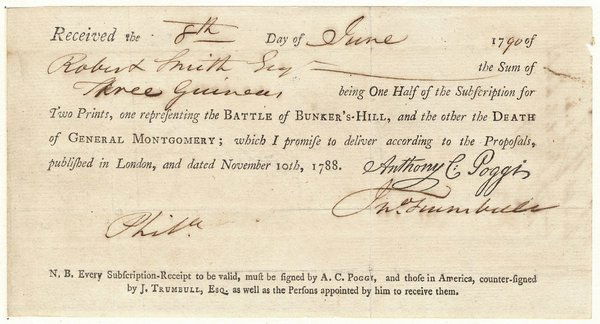 Received the 8th Day of June 1790 of
Robert Smith Esqr the Sum of
Three Guineas being One Half of the Subſcription for
Two Prints, one repreſenting the BATTLE OF BUNKER'S-HILL, and the other the DEATH
OF GENERAL MONTGOMERY; which I promiſe to deliver according to the Propoſals,
publiſhed in London, and dated November 10th, 1788. Anthony C. Poggi
Jno. Trumbull
Phila.
N. B. Every Subſcription-Receipt to be valid, muſt be ſigned by A. C. POGGI, and thoſe in America, counter-ſigned
by J. TRUMBULL, ESQ. as well as the Perſons appointed by him to receive them.